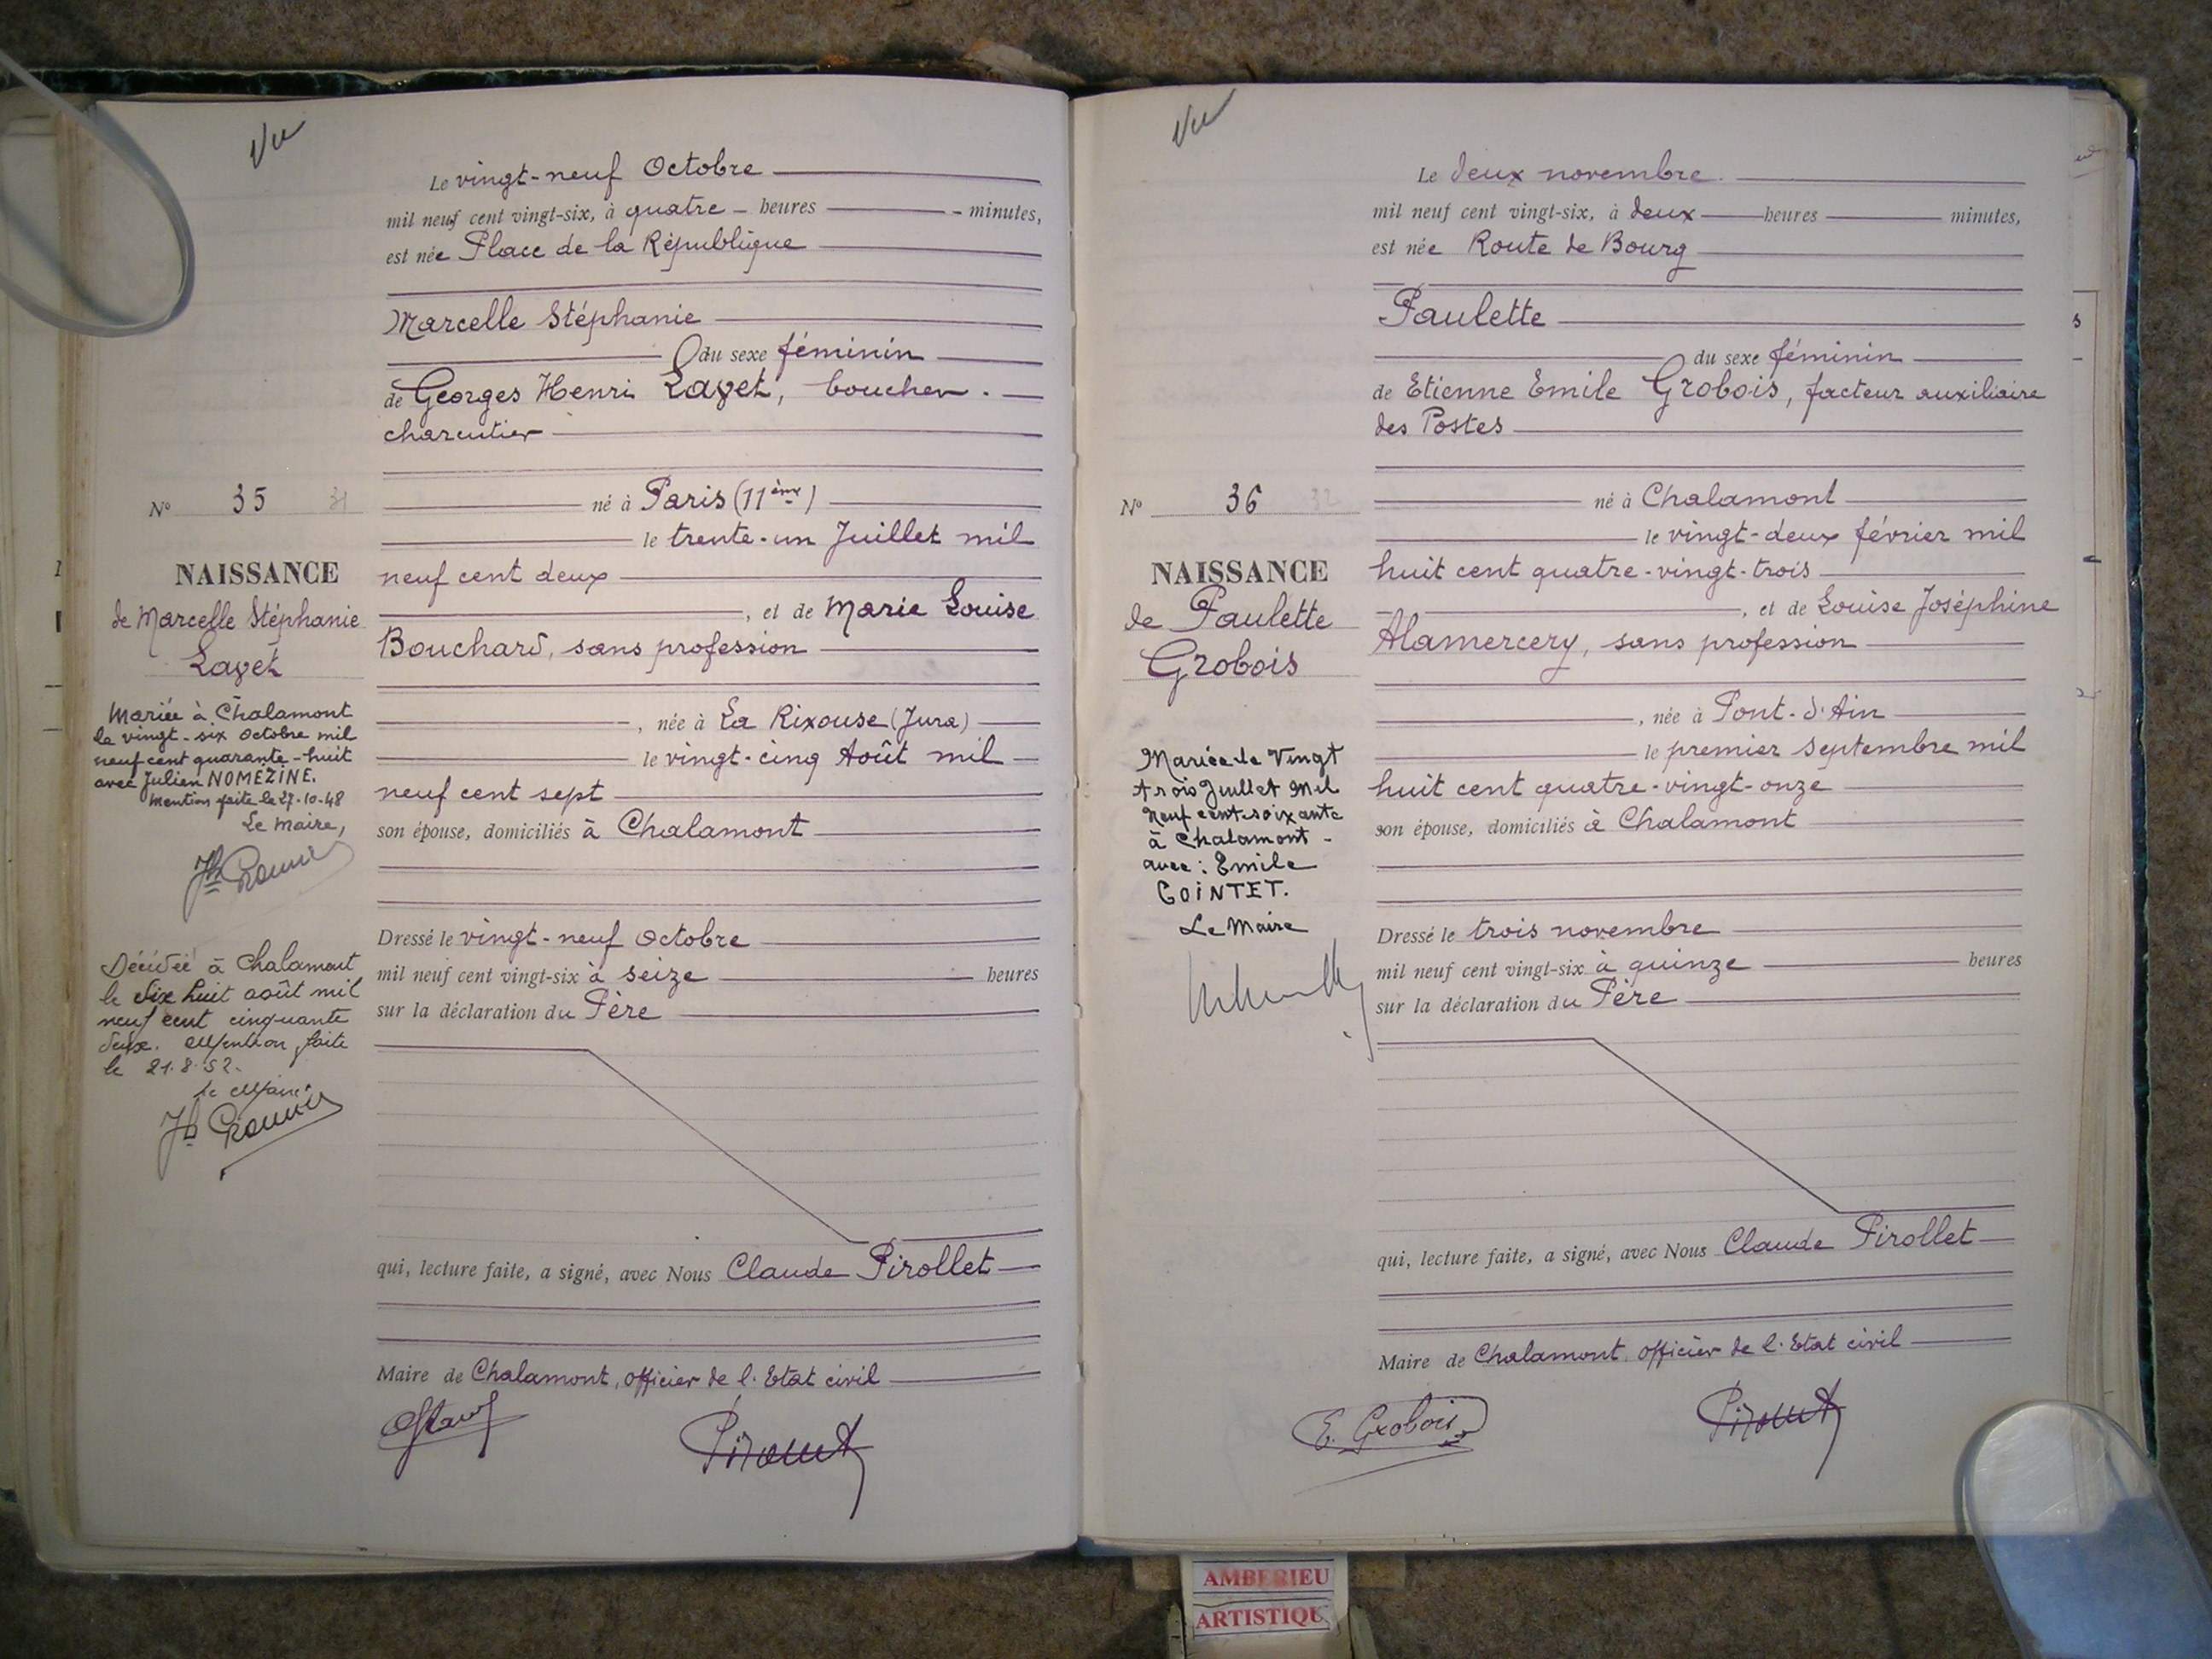 Vu
Le vingt-neuf Octobre
mil neuf cent vingt-six, à quatre - heures - minutes,
est née Place de la République
Marcelle Stéphanie
du sexe féminin
de Georges Henri Layet, boucher.
charcutier
N° 35 31
né à Paris (11ème)
le trente-un Juillet mil
neuf cent deux
NAISSANCE
de Marcelle Stéphanie
Layet
, et de Marie Louise
Bouchard, sans profession
, née à La Rixouse (Jura)
le vingt-cinq Août mil
neuf cent sept
son épouse, domiciliés à Chalamont
Mariée à Chalamont
le vingt-six Octobre mil
neuf cent quarante-huit
avec Julien NOMEZINE.
Mention faite le 27-10-48
Le Maire,
Dressé le vingt-neuf Octobre
mil neuf cent vingt-six à seize heures
sur la déclaration du Père
Décédée à Chalamont
le dix huit août mil
neuf cent cinquante
deux. Mention faite
le 21.8.52.
Le Maire
qui, lecture faite, a signé, avec Nous Claude Pirollet
Maire de Chalamont, officier de l'Etat civil
Vu
Le deux novembre
mil neuf cent vingt-six, à deux heures minutes,
est née Route de Bourg
Paulette
du sexe féminin
de Etienne Emile Grobois, facteur auxiliaire
des Postes
N° 36 32
né à Chalamont
le vingt-deux février mil
huit cent quatre-vingt-trois
NAISSANCE
de Paulette
Grobois
, et de Louise Joséphine
Alamercery, sans profession
, née à Pont-d'Ain
le premier septembre mil
huit cent quatre-vingt-onze
son épouse, domiciliés à Chalamont
Mariée le Vingt
trois Juillet Mil
Neuf cent soixante
à Chalamont -
avec : Emile
COINTET.
Le Maire
Dressé le trois novembre
mil neuf cent vingt-six à quinze heures
sur la déclaration du Père
qui, lecture faite, a signé, avec Nous Claude Pirollet
Maire de Chalamont, officier de l'Etat civil
E. Grobois
AMBERIEU
ARTISTIQU